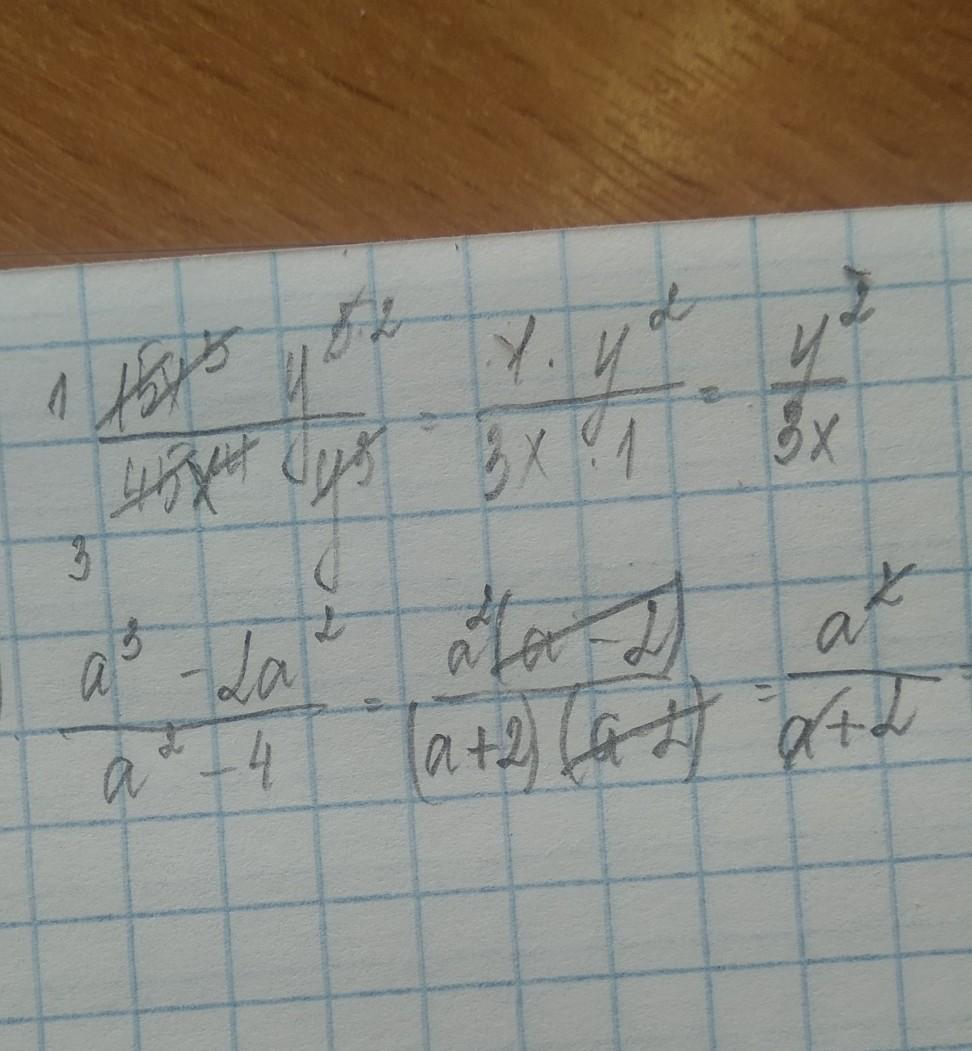 1 15x³ y⁵ ² / 45x⁴ y³ = 1 · y² / 3x · 1 = y² / 3x
3
a³ - 2a² / a² - 4 = a²(a - 2) / (a+2)(a-2) = a² / a+2 =